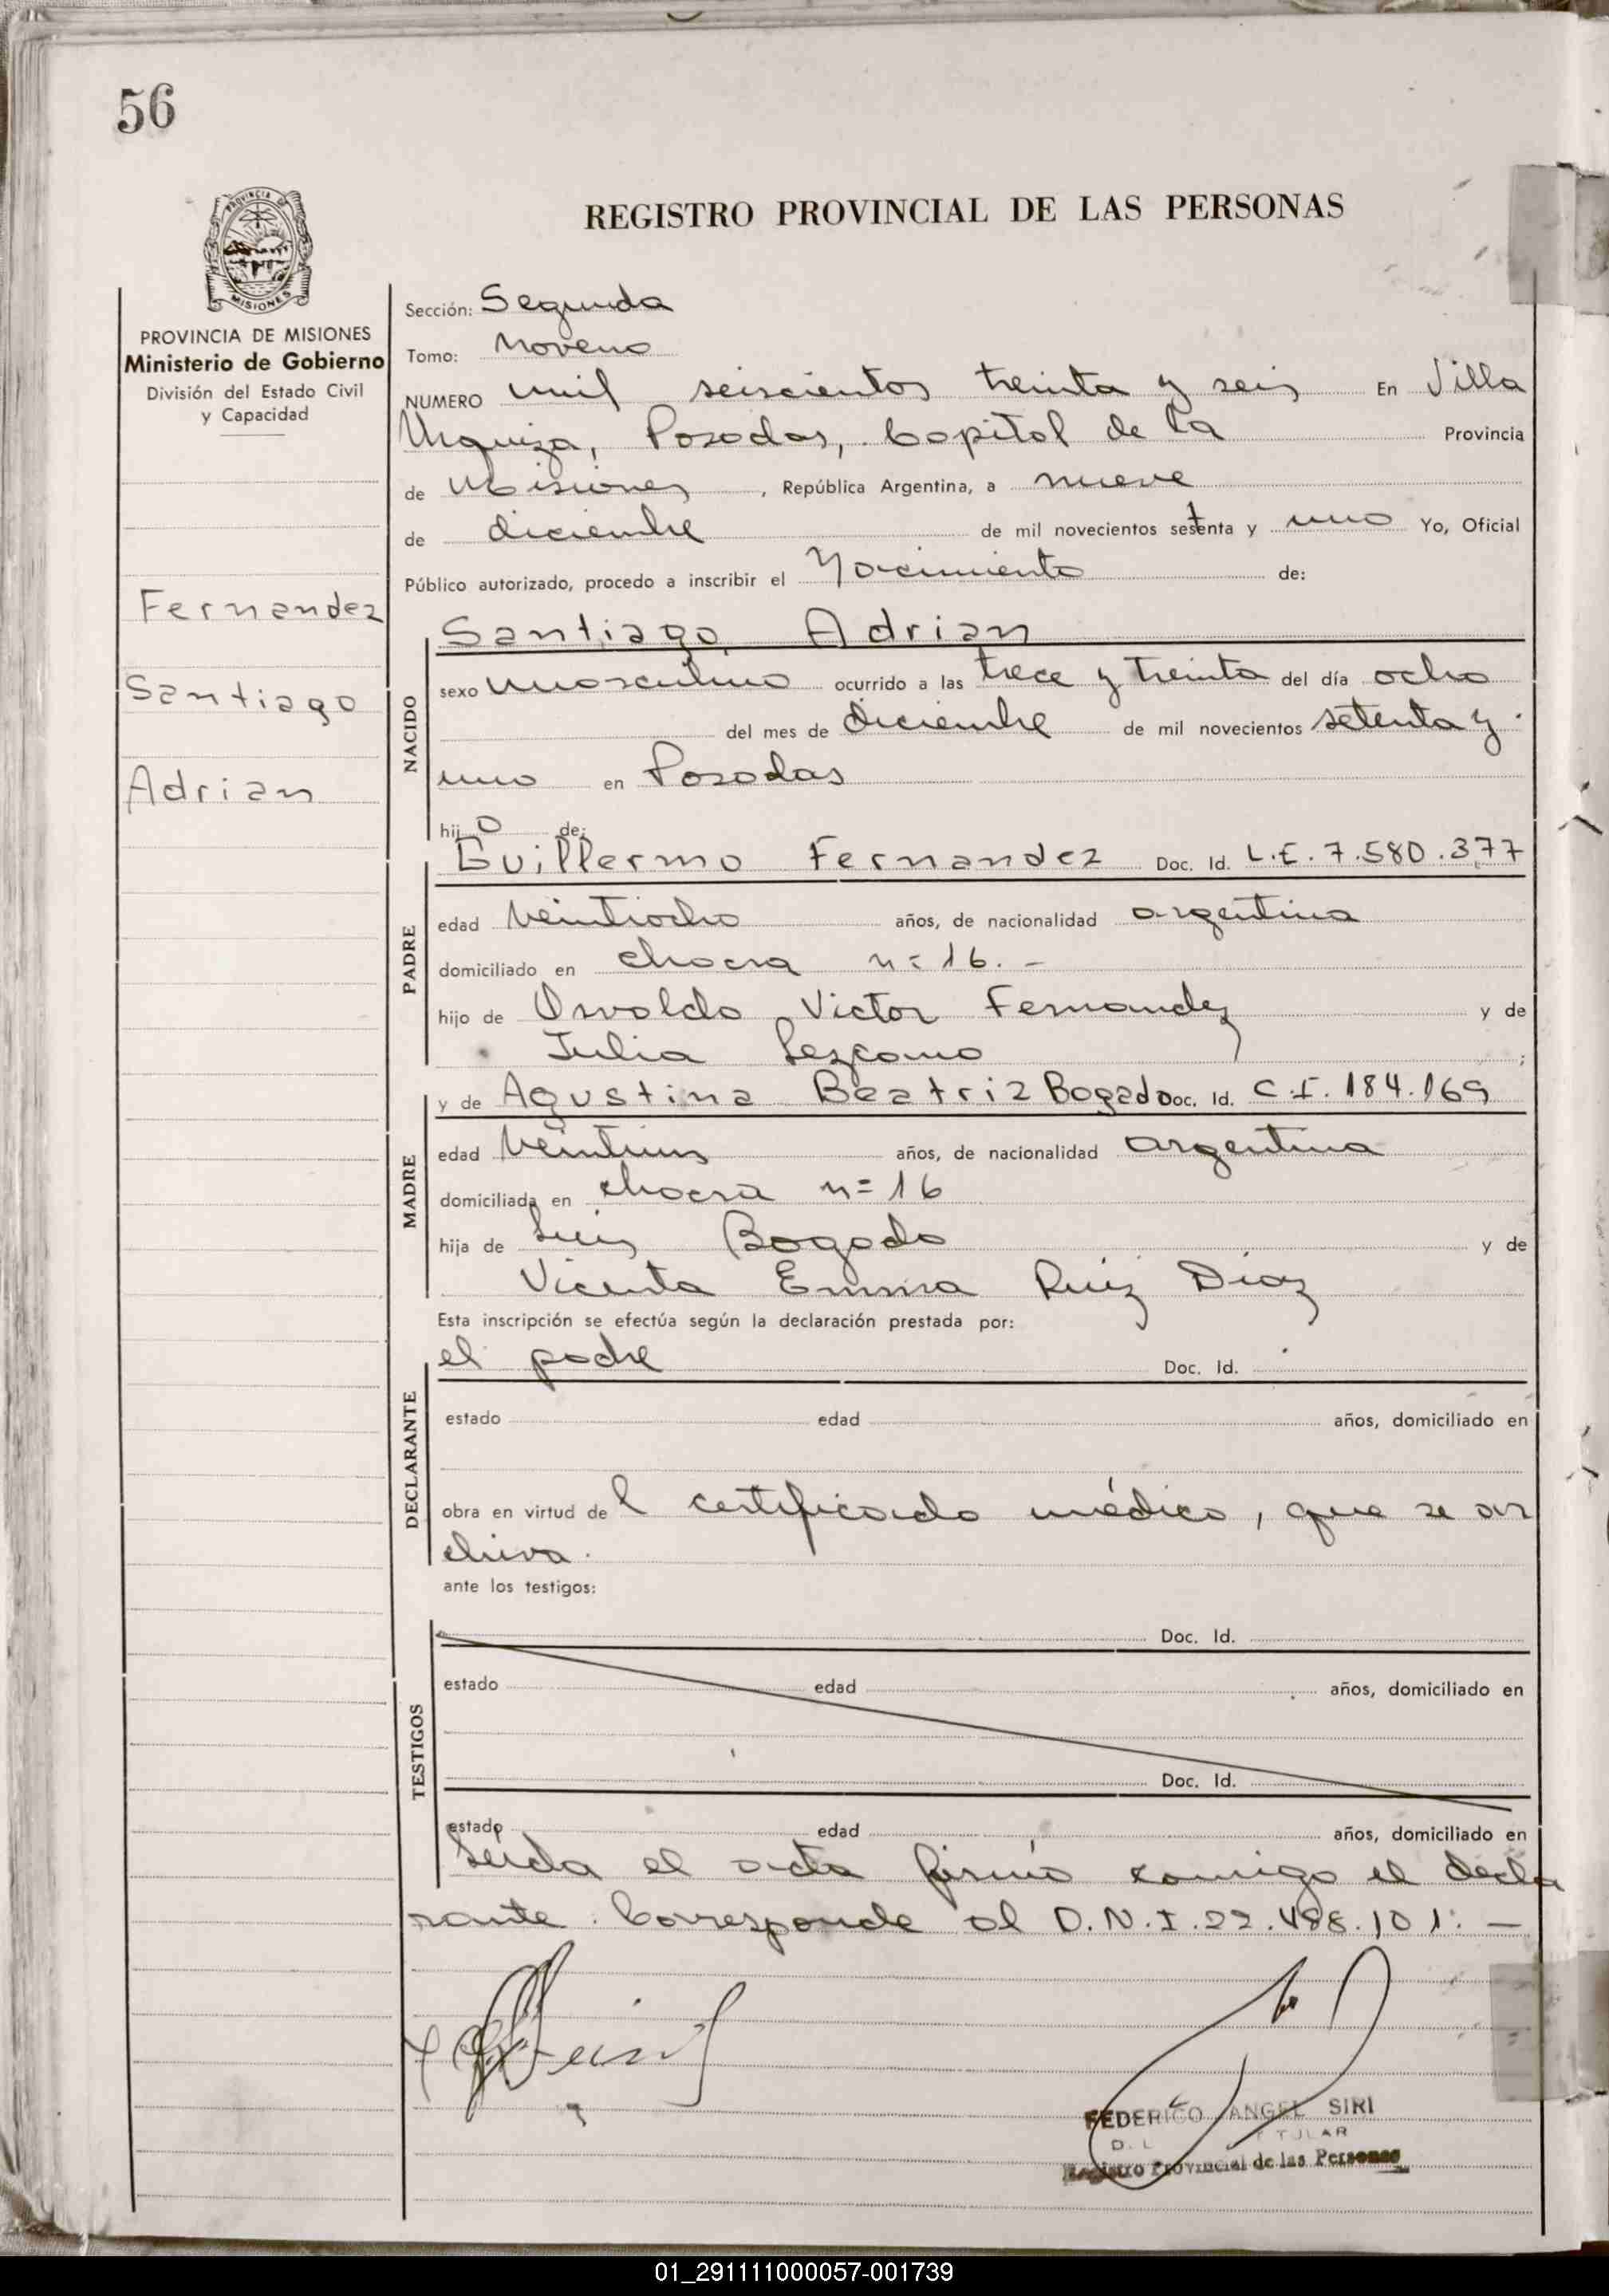 56
PROVINCIA DE
MISIONES
PROVINCIA DE MISIONES
Ministerio de Gobierno
División del Estado Civil
y Capacidad
Fernandez
Santiago
Adrian
REGISTRO PROVINCIAL DE LAS PERSONAS
Sección: Segunda
Tomo: Noveno
NUMERO mil seiscientos treinta y seis En Villa
Urquiza, Posadas, Capital de la Provincia
de Misiones, República Argentina, a nueve
de diciembre de mil novecientos setenta y uno Yo, Oficial
Público autorizado, procedo a inscribir el Nacimiento de:
Santiago Adrian
NACIDO
sexo masculino ocurrido a las trece y treinta del día ocho
del mes de diciembre de mil novecientos setenta y
uno en Posadas
hijo de:
Guillermo Fernandez Doc. Id. L.E. 7.580.377
PADRE
edad veintiocho años, de nacionalidad argentina
domiciliado en chacra n= 16. -
hijo de Osvaldo Victor Fernandez y de
Julia Lezcano ;
y de Agustina Beatriz Bogado Doc. Id. C.I. 184.169
MADRE
edad veintiun años, de nacionalidad argentina
domiciliada en chacra n= 16
hija de Luis Bogado y de
Vicenta Emma Ruiz Diaz
Esta inscripción se efectúa según la declaración prestada por:
el padre Doc. Id.
DECLARANTE
estado edad años, domiciliado en
obra en virtud del certificado médico, que se ar
chiva.
ante los testigos:
Doc. Id.
TESTIGOS
estado edad años, domiciliado en
Doc. Id.
estado edad años, domiciliado en
Leida el acta firmó comigo el decla
rante. Corresponde al D.N.I. 22.498.101. —
FEDERICO ANGEL SIRI
Registro Provincial de las Personas
01_291111000057-001739